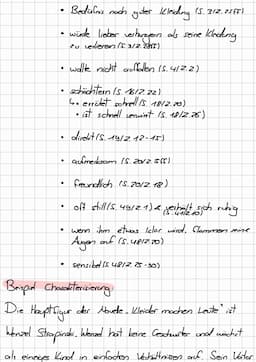 • Bedürfnis nach guter Kleidung (S. 3/Z. 25ff)
• würde lieber verhungern als seine Kleidung
zu verlieren (S. 3/Z. 28ff)
• wollte nicht auffallen (S. 4/Z. 2)
• schüchtern (S. 16/Z. 22)
↳ • errötet schnell (S. 18/Z. 20)
• ist schnell verwirrt (S. 18/Z. 26)
• direkt (S. 19/Z. 12-15)
• aufmerksam (S. 20/Z. 5ff)
• freundlich (S. 20/Z. 18)
• oft still (S. 49/Z. 1) & verhält sich ruhig
(S. 41/Z. 10)
• wenn ihm etwas klar wird, flammen seine
Augen auf (S. 48/Z. 20)
• sensibel (S. 48/Z. 25-30)
Beispiel Charakterisierung
Die Hauptfigur der Novelle „Kleider machen Leute" ist
Wenzel Strapinski. Wenzel hat keine Geschwister und wächst
als einziges Kind in einfachen Verhältnissen auf. Sein Vater